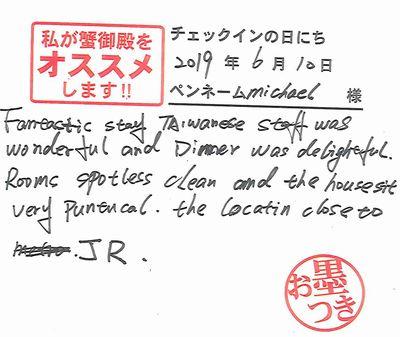 私が蟹御殿を
オススメ
します!!
チェックインの日にち
2019 年 6 月 10 日
ペンネーム michael 様
Fantastic stay Taiwanese staff was
wonderful and Dinner was delightful.
Rooms spotless clean and the housesit
very Puntucal. the Locatin close to
metro. JR.
お墨つき